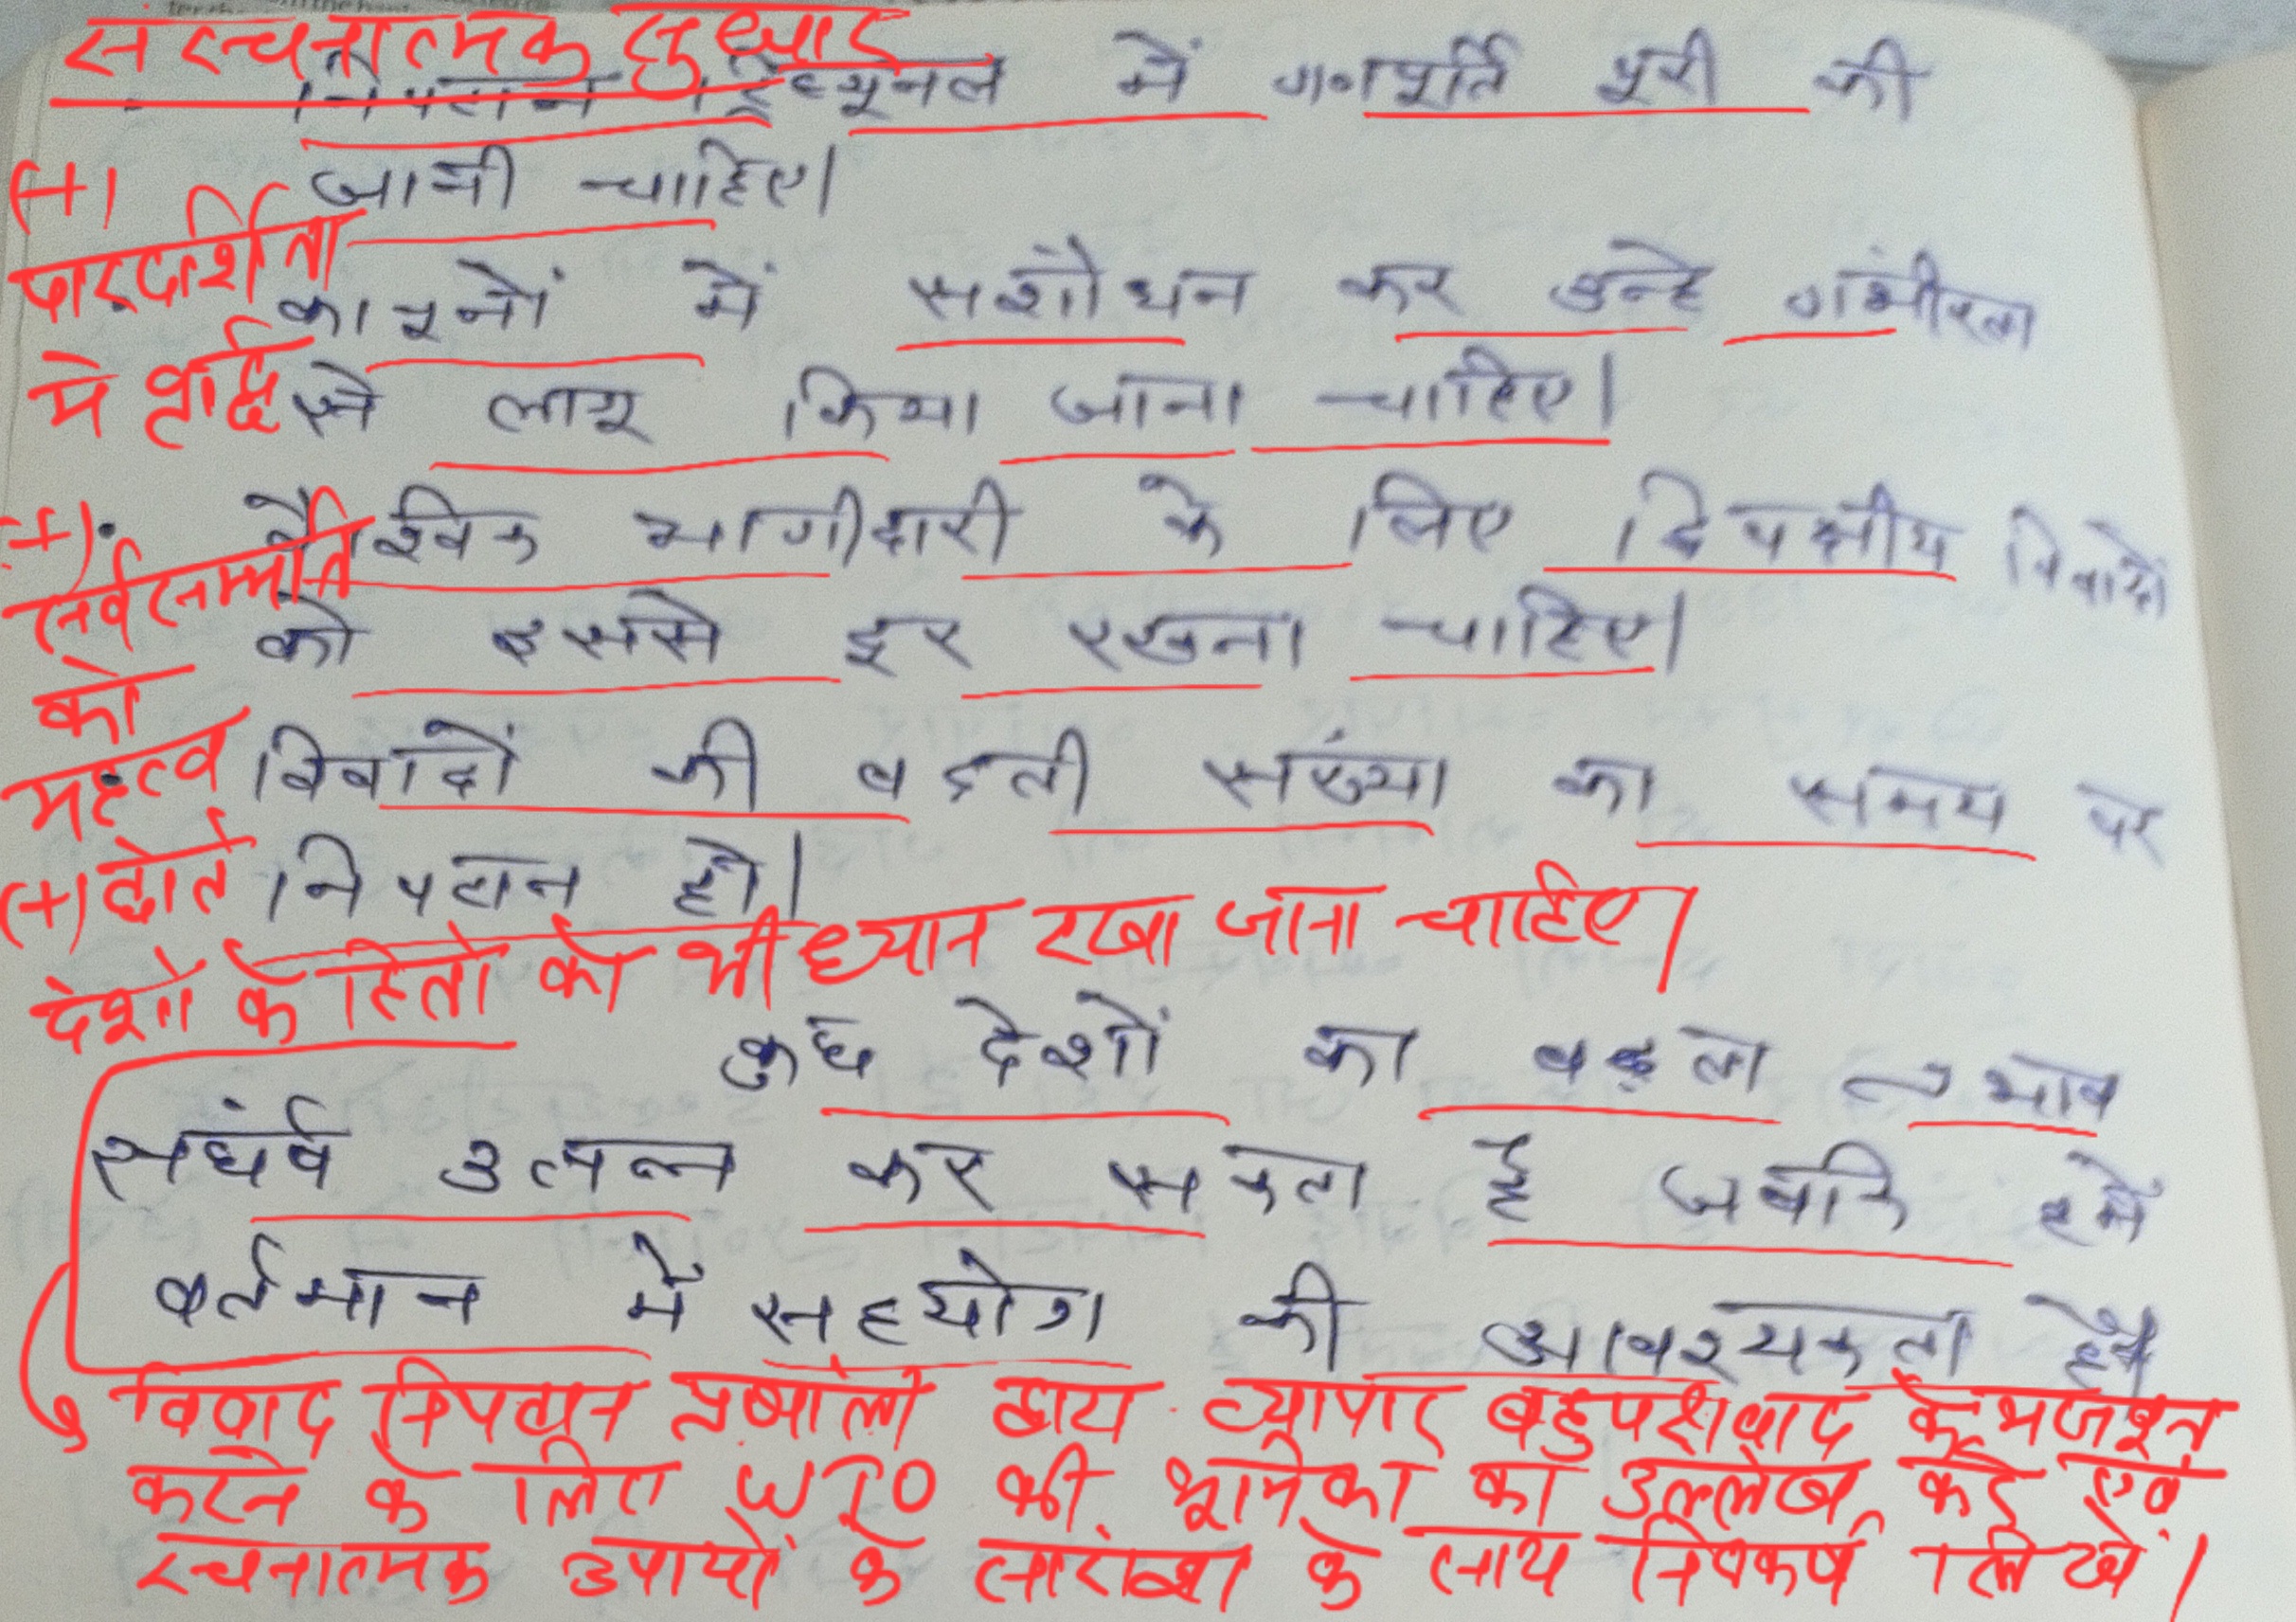 संरचनात्मक सुधार
निपटान ट्रिब्यूनल में गणपूर्ति पूरी की
जानी चाहिए।
(+)
पारदर्शिता
में वृद्धि
कानूनों में सशोंधन कर उन्हे गंभीरता
से लागू किया जाना चाहिए।
(+)
सर्वसम्मति
को
महत्व
वैश्विक भागीदारी के लिए द्विपक्षीय विवादों
को इससे दूर रखना चाहिए।
विवादों की बढ़ती संख्या का समय पर
निपटान हो।
(+) छोटे
देशों के हितों को भी ध्यान रखा जाना चाहिए।
कुछ देशों का बढ़ता प्रभाव
संघर्ष उत्पन्न कर सकता है जबकि हमें
वर्तमान में सहयोग की आवश्यकता है।
विवाद निपटान प्रणाली द्वारा व्यापार बहुपक्षवाद के मजबूत
करने के लिए WTO की भूमिका का उल्लेख करें एवं
रचनात्मक उपायों के सारांश के साथ निष्कर्ष लिखें।